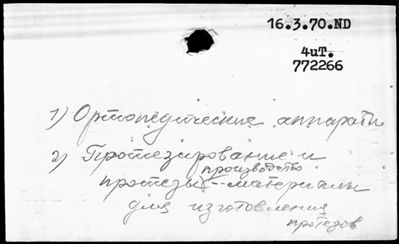 16.3.70.ND
4иТ.
772266
1) Ортопедические аппараты
2) Протезирование и
производство
протезы -- материалы
для изготовления
протезов